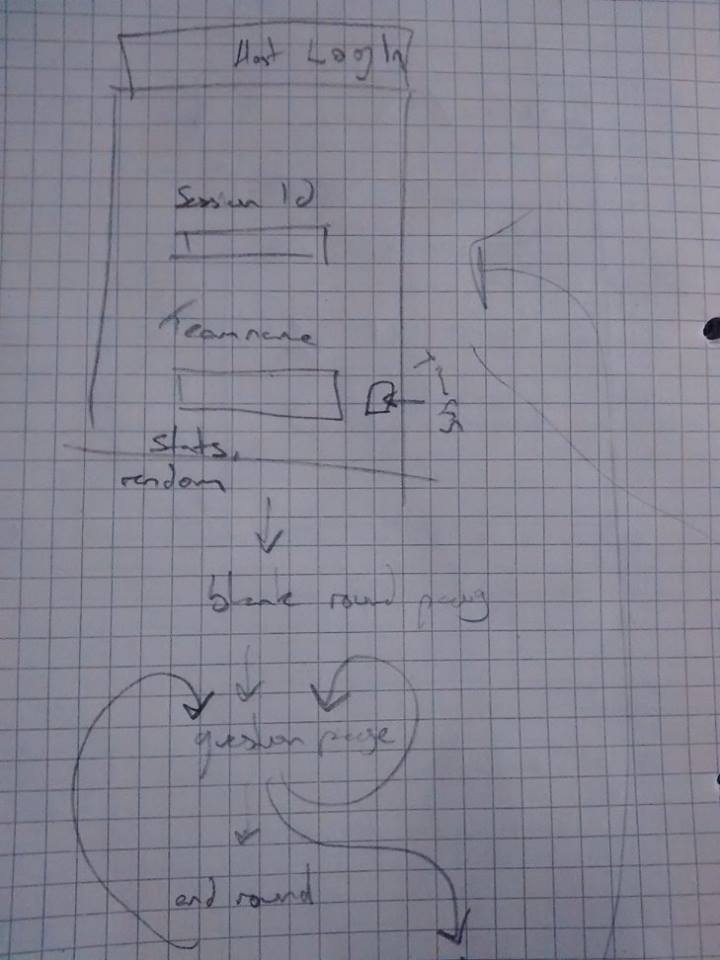 Host LogIn
Session Id
Teamname
stats,
random
blank round page
question page
end round